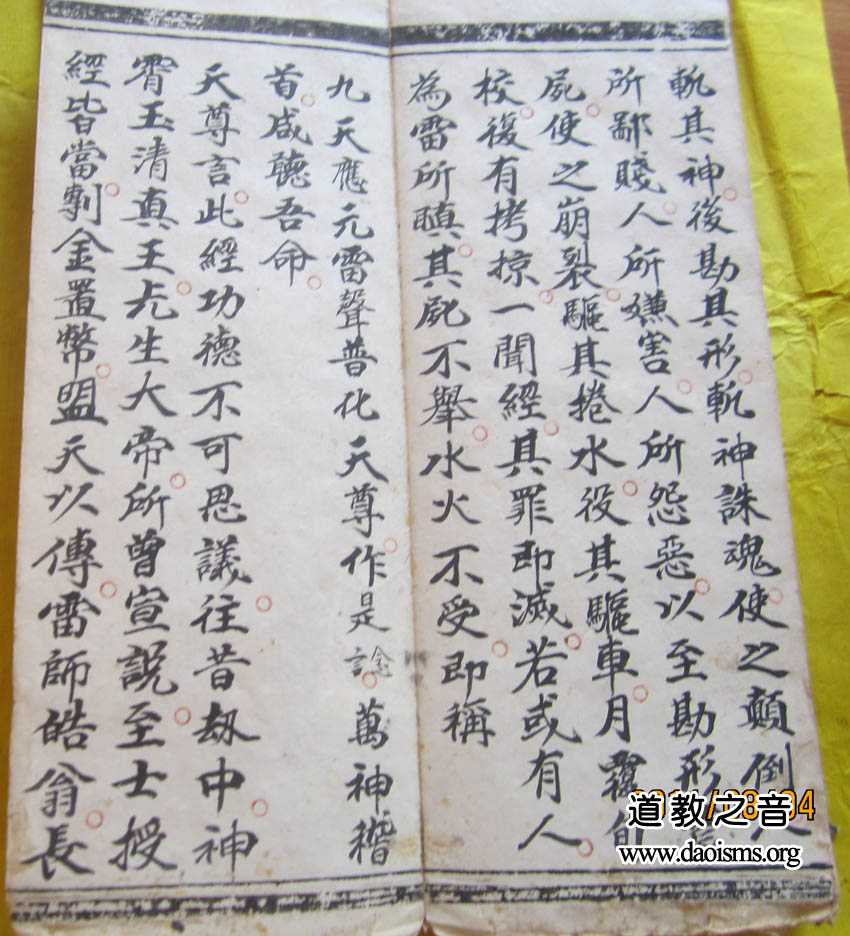 軌其神後勘其形軌神誅魂使之顛倒人
所鄙賤人所嫌害人所怨惡以至勘形
屍使之崩裂驅其捲水役其驅車月覆旬
校復有拷掠一聞經其罪即滅若或有人
為雷所瞋其屍不舉水火不受即稱
九天應元雷聲普化天尊作是諗萬神稽
首咸聽吾命
天尊言此經功德不可思議往昔劫中神
霄玉清真王仧生大帝所曾宣說至士授
經皆當金置幣盟天以傳雷師皓翁長
道教之音
www.daoisms.org